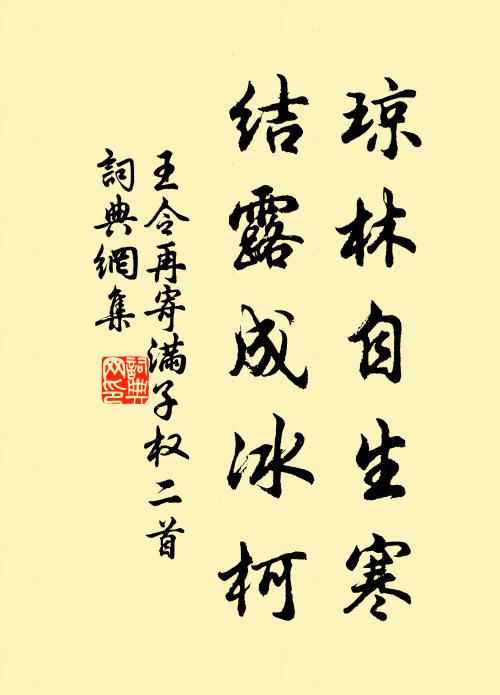 琼林自生寒
结露成冰柯
王令再寄满子权二首
詞典網集
詞典網印